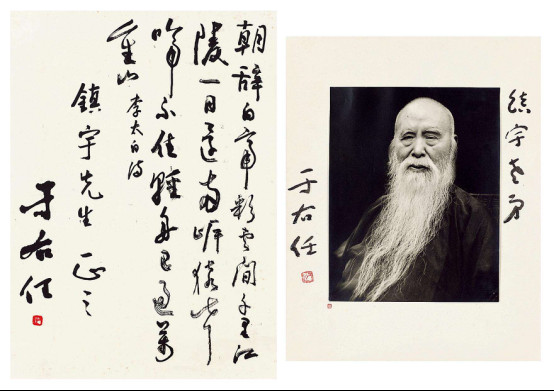 朝辭白帝彩雲間千里江
陵一日還兩岸猿聲
啼不住輕舟已過萬
重山 李太白詩
鎮宇先生 正之
于右任
宇老弟
于右任